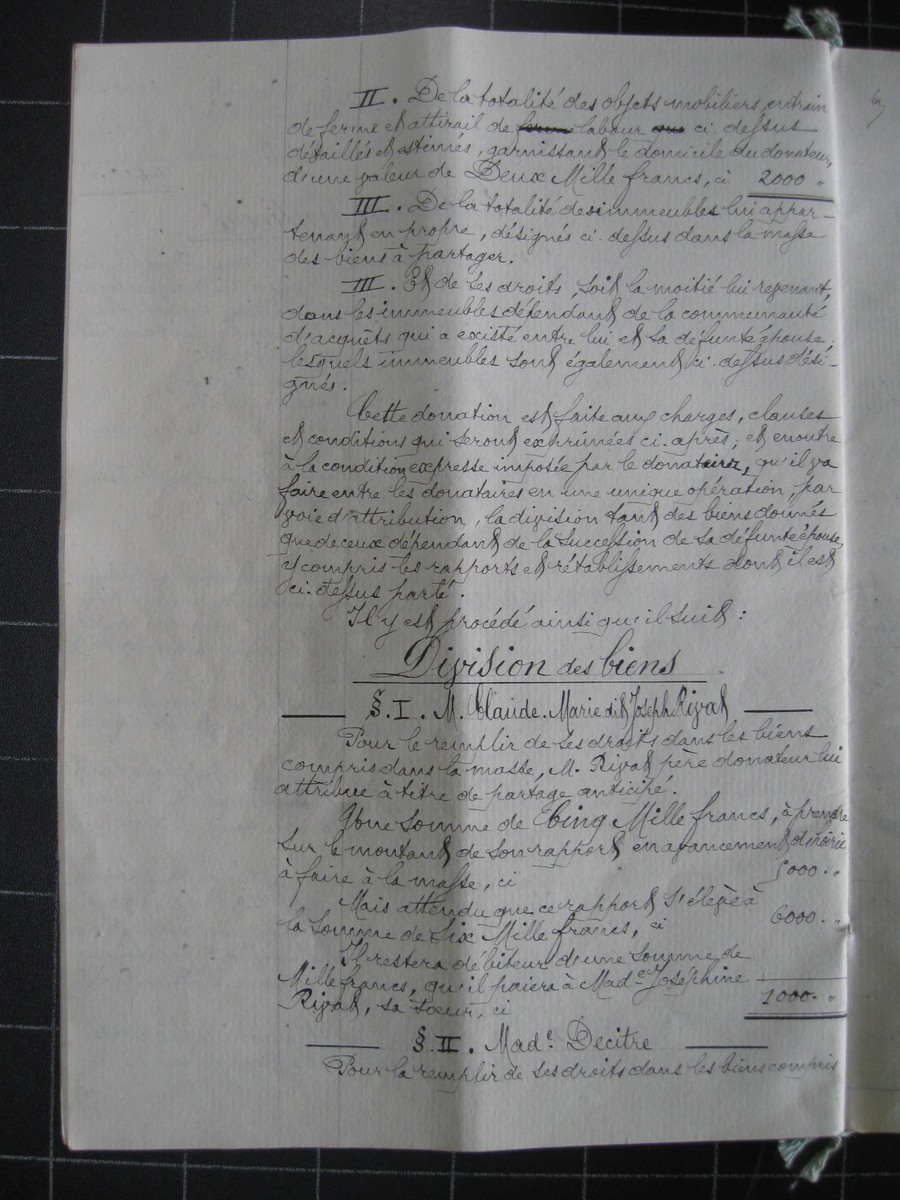 II. De la totalité des objets mobiliers, en train
de ferme et attirail de labour ci-dessus
détaillés et estimés, garnissant le domicile du donateur,
d'une valeur de Deux Mille francs, ci 2000 "
III. De la totalité des immeubles lui appar-
tenant en propre, désignés ci-dessus dans la masse
des biens à partager.
III. Et de ses droits, soit la moitié lui revenant,
dans les immeubles dépendant de la communauté
d'acquêts qui a existé entre lui et sa défunte épouse,
lesquels immeubles sont également ci-dessus dési-
gnés.
Cette donation est faite aux charges, clauses
et conditions qui seront exprimées ci-après; et en outre
à la condition expresse imposée par le donateur, qu'il va
faire entre les donataires en une unique opération, par
voie d'attribution, la division tant des biens donnés
que de ceux dépendant de la succession de sa défunte épouse,
y compris les rapports et rétablissements dont il est
ci-dessus parlé.
Il y est procédé ainsi qu'il suit :
Division des biens
§. I. M. Claude-Marie dit Joseph Rivat
Pour le remplir de ses droits dans les biens
compris dans la masse, M. Rivat père donateur lui
attribue à titre de partage anticipé.
Une somme de Cinq Mille francs, à prendre
sur le montant de son rapport en avancement d'hoirie
à faire à la masse, ci 5000 "
Mais attendu que ce rapport s'élève à
la somme de Six Mille francs, ci 6000 "
Il restera débiteur d'une somme de
Mille francs, qu'il paiera à Made Joséphine
Rivat, sa sœur, ci 1000 "
§. II. Made Decitre
Pour la remplir de ses droits dans les biens compris